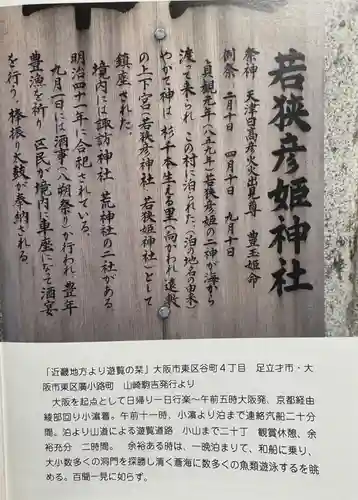 若狭彦姫神社
祭神　天津日高彦火火出見尊　豊玉姫命
例祭　二月十日　四月十日　九月十日
貞観元年（八五九年）若狭彦姫の二神が海から
渡って来られ、この村に泊られた（泊の地名の由来）
やがて神は、杉千本生える里へ向かわれ遠敷
の上下宮（若狭彦神社、若狭姫神社）として
鎮座された。
境内には諏訪神社、荒神社の二社がある
明治四十一年に合祀されている。
九月一日には酒事（八朔祭り）が行われ、豊年
豊漁を祈り、区民が境内に車座になって酒宴
を行う。棒振り太鼓が奉納される
「近畿地方より遊覧の栞」大阪市東区谷町４丁目　足立才市・大
阪市東区廣小路町　山崎駒吉発行より
大阪を起点として日帰り一日行楽～午前五時大阪発、京都経由
綾部回り小濱着。午前十一時、小濱より泊まで連絡汽船二十分
間。泊より山道による遊覧道路　小山まで二十丁　観賞休憩、余
裕充分　二時間。　余裕ある時は、一晩泊まりて、和船に乗り、
大小数多くの洞門を探勝し清く蒼海に数多くの魚類遊泳するを眺
める。百聞一見に如らず。